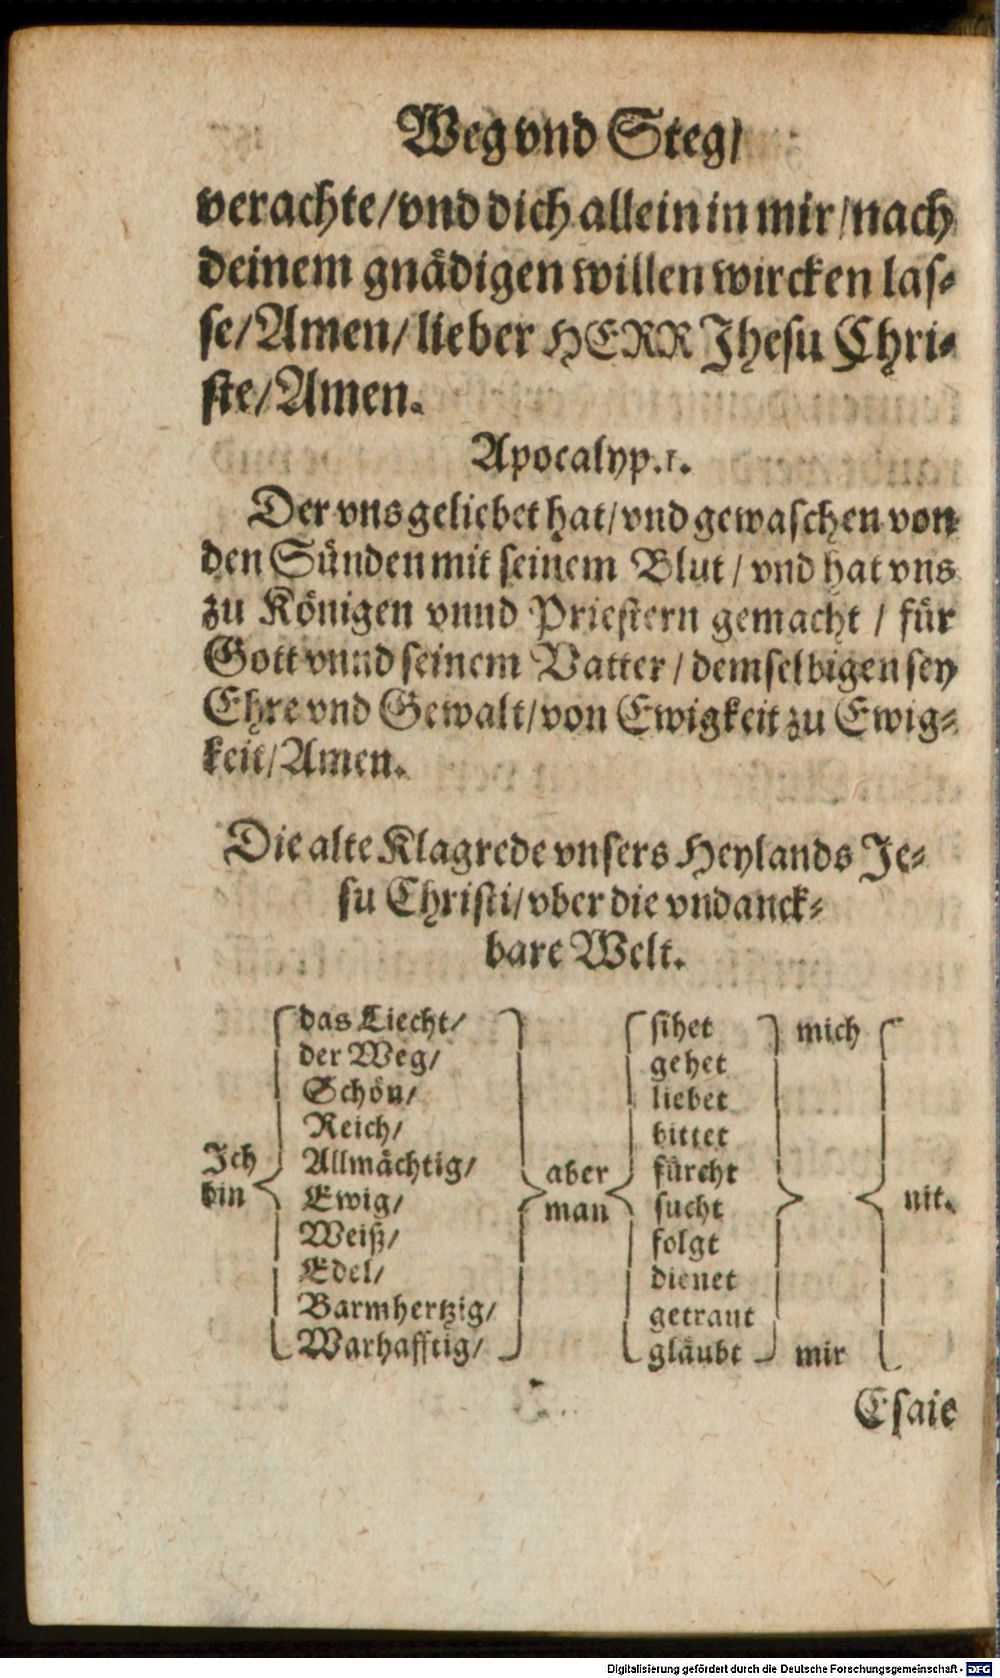 Weg vnd Steg/
verachte/vnd dich allein in mir/nach
deinem gnädigen willen wircken las-
se/Amen/lieber HERR Jhesu Chri-
ste/Amen.
Apocalyp.1.
Der vns geliebet hat/vnd gewaschen von
den Sünden mit seinem Blut / vnd hat vns
zu Königen vnnd Priestern gemacht / für
Gott vnnd seinem Vatter / demselbigen sey
Ehre vnd Gewalt/von Ewigkeit zu Ewig-
keit/Amen.
Die alte Klagrede vnsers Heylands Je-
su Christi/vber die vndanck-
bare Welt.
das Liecht/ sihet mich
der Weg/ gehet
Schön/ liebet
Reich/ bittet
Ich Allmächtig/ aber fürcht
bin Ewig/ man sucht nit.
Weiß/ folgt
Edel/ dienet
Barmhertzig/ getraut
Warhafftig/ gläubt mir
Esaie
Digitalisierung gefördert durch die Deutsche Forschungsgemeinschaft - DFG